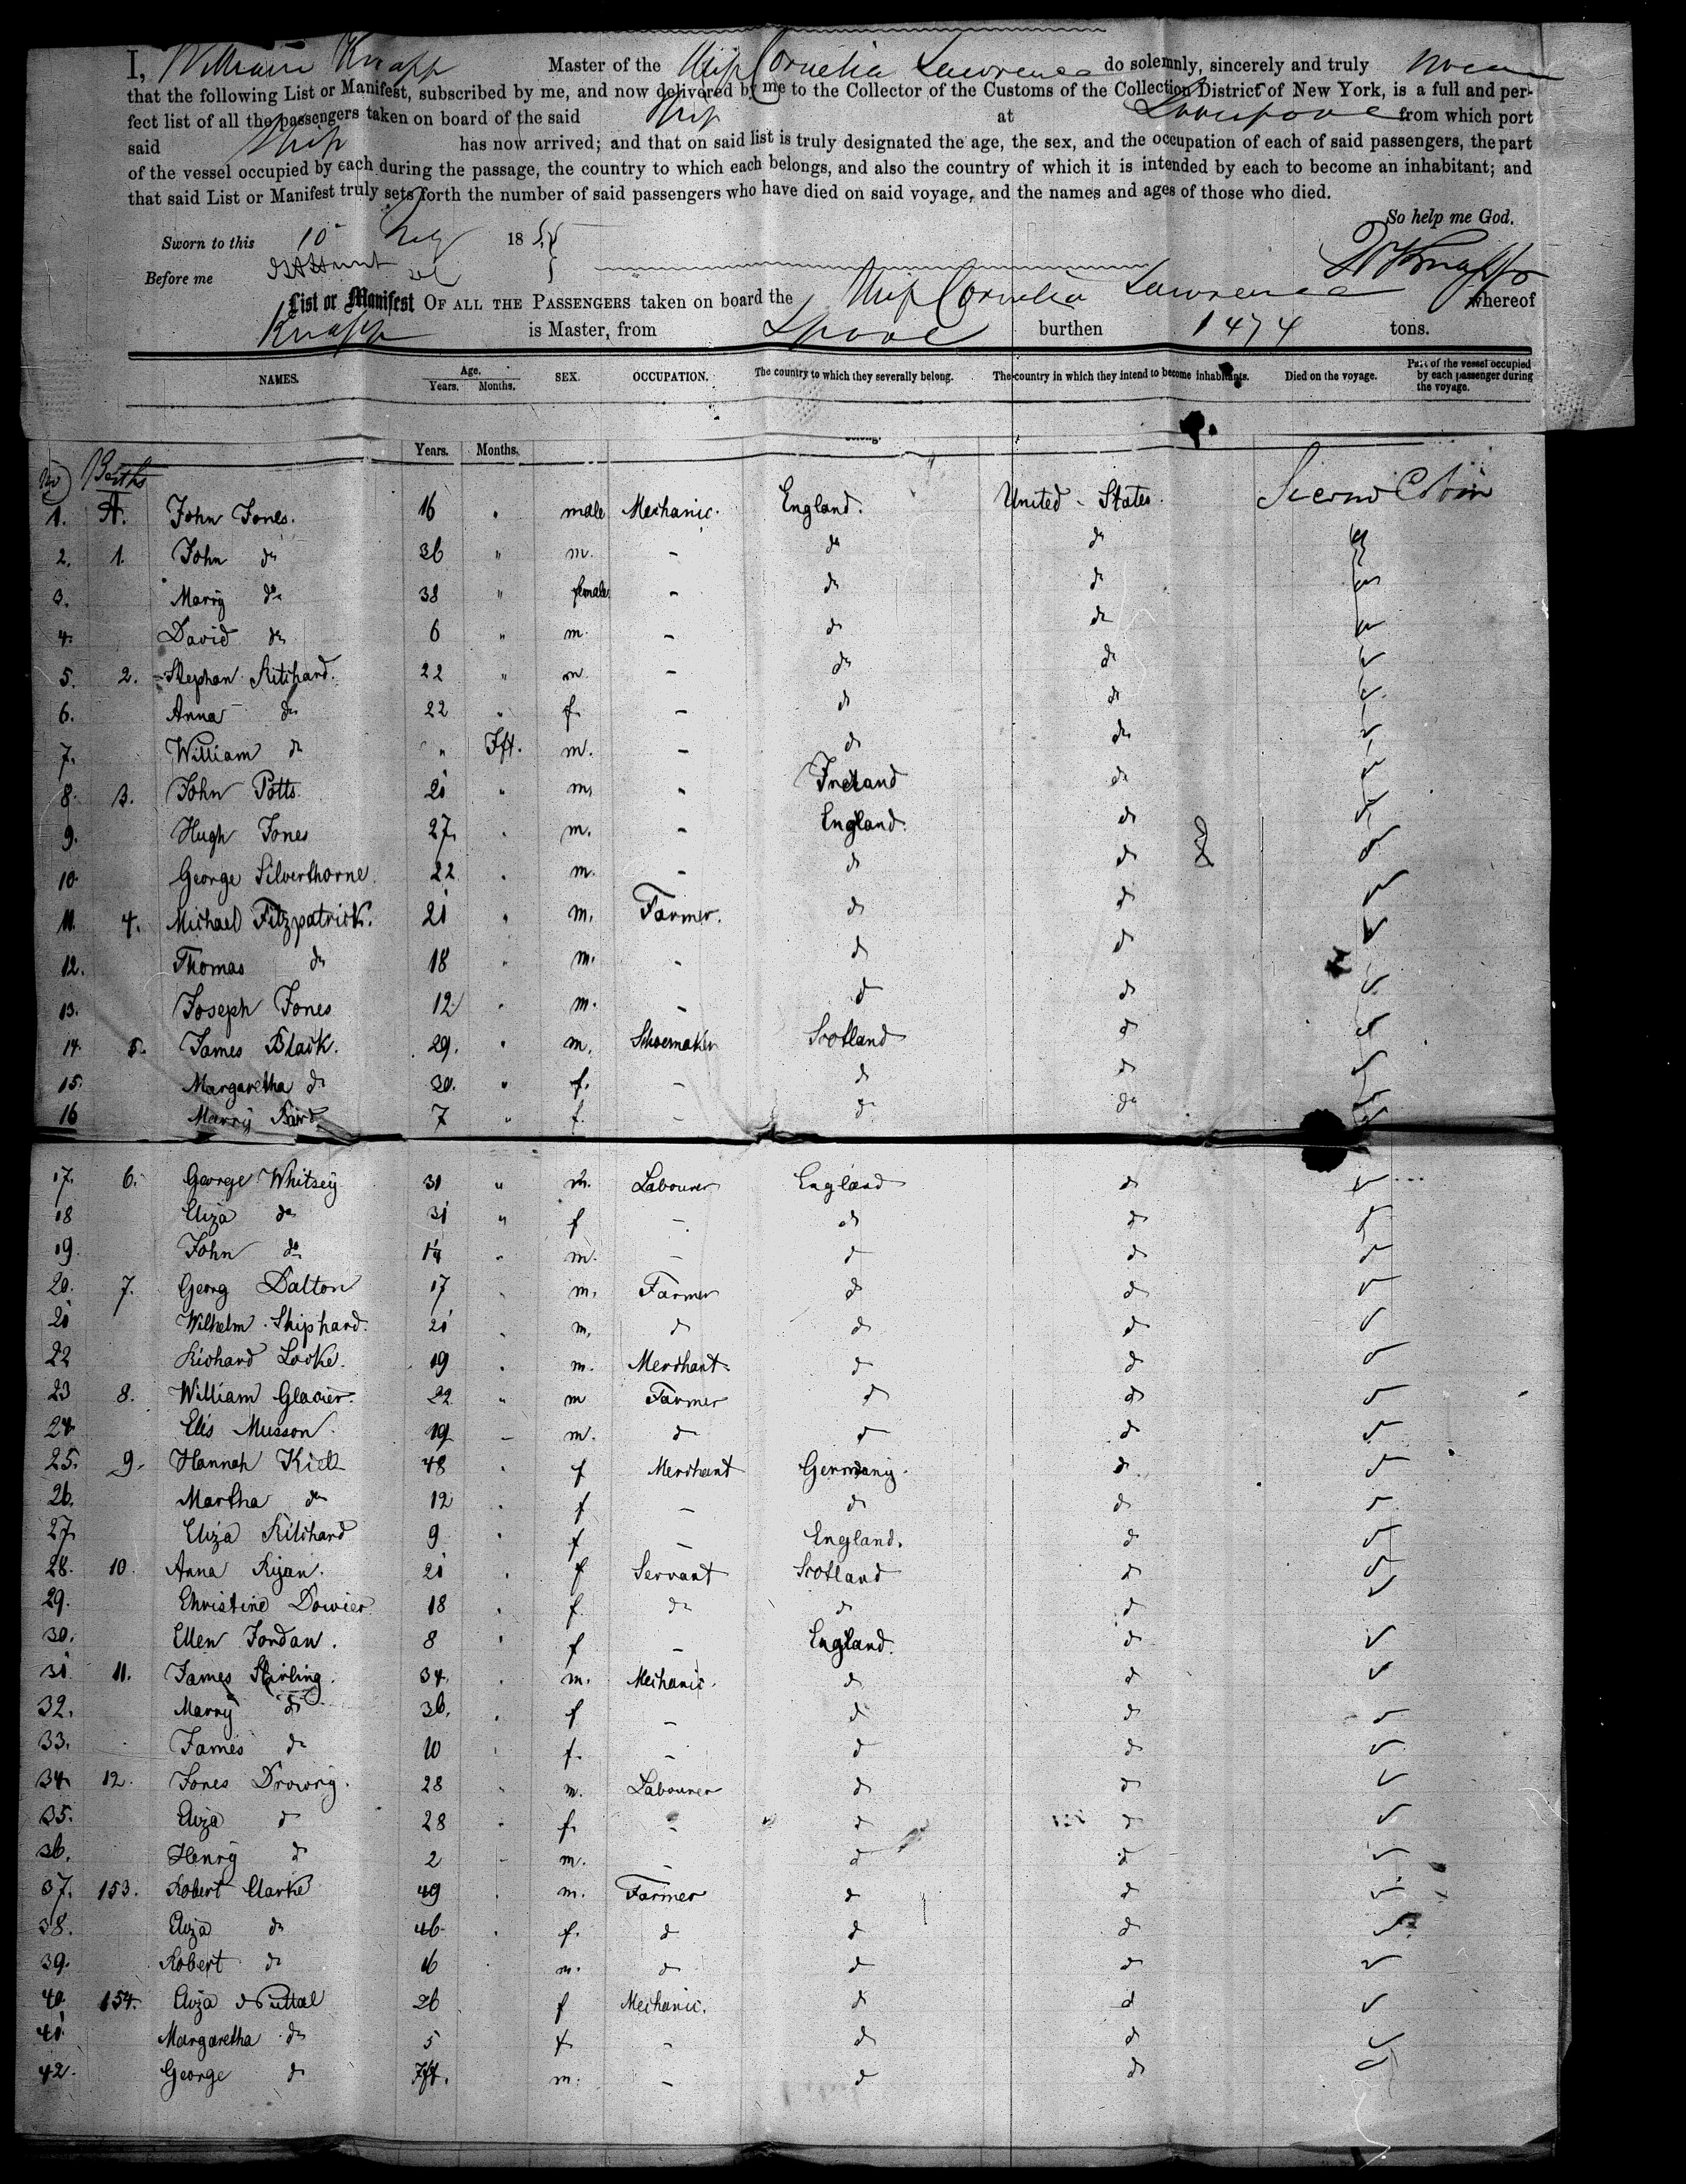 I, William Knapp Master of the Ship Cornelia Lawrence do solemnly, sincerely and truly swear
that the following List or Manifest, subscribed by me, and now delivered by me to the Collector of the Customs of the Collection District of New York, is a full and per-
fect list of all the passengers taken on board of the said Ship at Liverpool from which port
said Ship has now arrived; and that on said list is truly designated the age, the sex, and the occupation of each of said passengers, the part
of the vessel occupied by each during the passage, the country to which each belongs, and also the country of which it is intended by each to become an inhabitant; and
that said List or Manifest truly sets forth the number of said passengers who have died on said voyage, and the names and ages of those who died.
So help me God.
Sworn to this 10 18
Before me W Knapp
List or Manifest OF ALL THE PASSENGERS taken on board the Ship Cornelia Lawrence whereof
Knapp is Master, from Lpool burthen 1474 tons.
NAMES. Age. Years. Months. SEX. OCCUPATION. The country to which they severally belong. The country in which they intend to become inhabitants. Died on the voyage. Part of the vessel occupied by each passenger during the voyage.
Years. Months.
No Berths
1. A. John Jones. 16 " male Mechanic. England. United States. Second Cabin
2. 1. John do 36 " m. - do do
3. Marry do 38 " female - do do
4. David do 6 " m. - do do
5. 2. Stephan Ritchard. 22 " m. - do do
6. Anna do 22 " f. - do do
7. William do " Ift. m. - do do
8. 3. John Potts. 21 " m. - Ireland do
9. Hugh Jones 27. " m. - England. do
10. George Silverthorne. 22 " m. - do do
11. 4. Michael Fitzpatrick. 21 " m. Farmer. do do
12. Thomas do 18 " m. - do do
13. Joseph Jones 12 " m. - do do
14. 5. James Black. 29. " m. Schoemaker Scotland do
15. Margaretha do 30. " f. - do do
16 Marry Baird 7 " f. - do do
17. 6. George Whitsey 31 " m. Labourer England do
18 Eliza do 31 " f - do do
19. John do 14 " m. - do do
20. 7. Georg Dalton 17 m. Farmer do do
21 Wilhelm Shiphard. 21 m. do do do
22 Richard Locke. 19 m. Merchant do do
23 8. William Glacier. 22 " m Farmer do do
24 Elis Musson. 19 - m. do do do
25. 9. Hannah Kiel 48 f Merchant Germany. do
26. Martha do 12 f - do do
27. Eliza Ritchard 9 f - England. do
28. 10. Anna Ryan. 21 f Servant Scotland do
29. Christine Dowier 18 f. do do do
30. Ellen Jordan. 8 f - England. do
31 11. James Stirling. 34. m. Mechanic. do do
32. Marry do 36. f - do do
33. James do 10 f. - do do
34 12. Jones Drowry. 28 m. Labourer do do
35. Eliza do 28 f. - do do
36. Henry do 2 - m. - do do
37. 153. Robert Clarke 49 m. Farmer do do
38. Eliza do 46 f. do do do
39. Robert do 16 m. do do do
40. 154. Eliza Nuttal 26 f Mechanic. do do
41. Margaretha do 5 f - do do
42. George do Ift. m. - do do